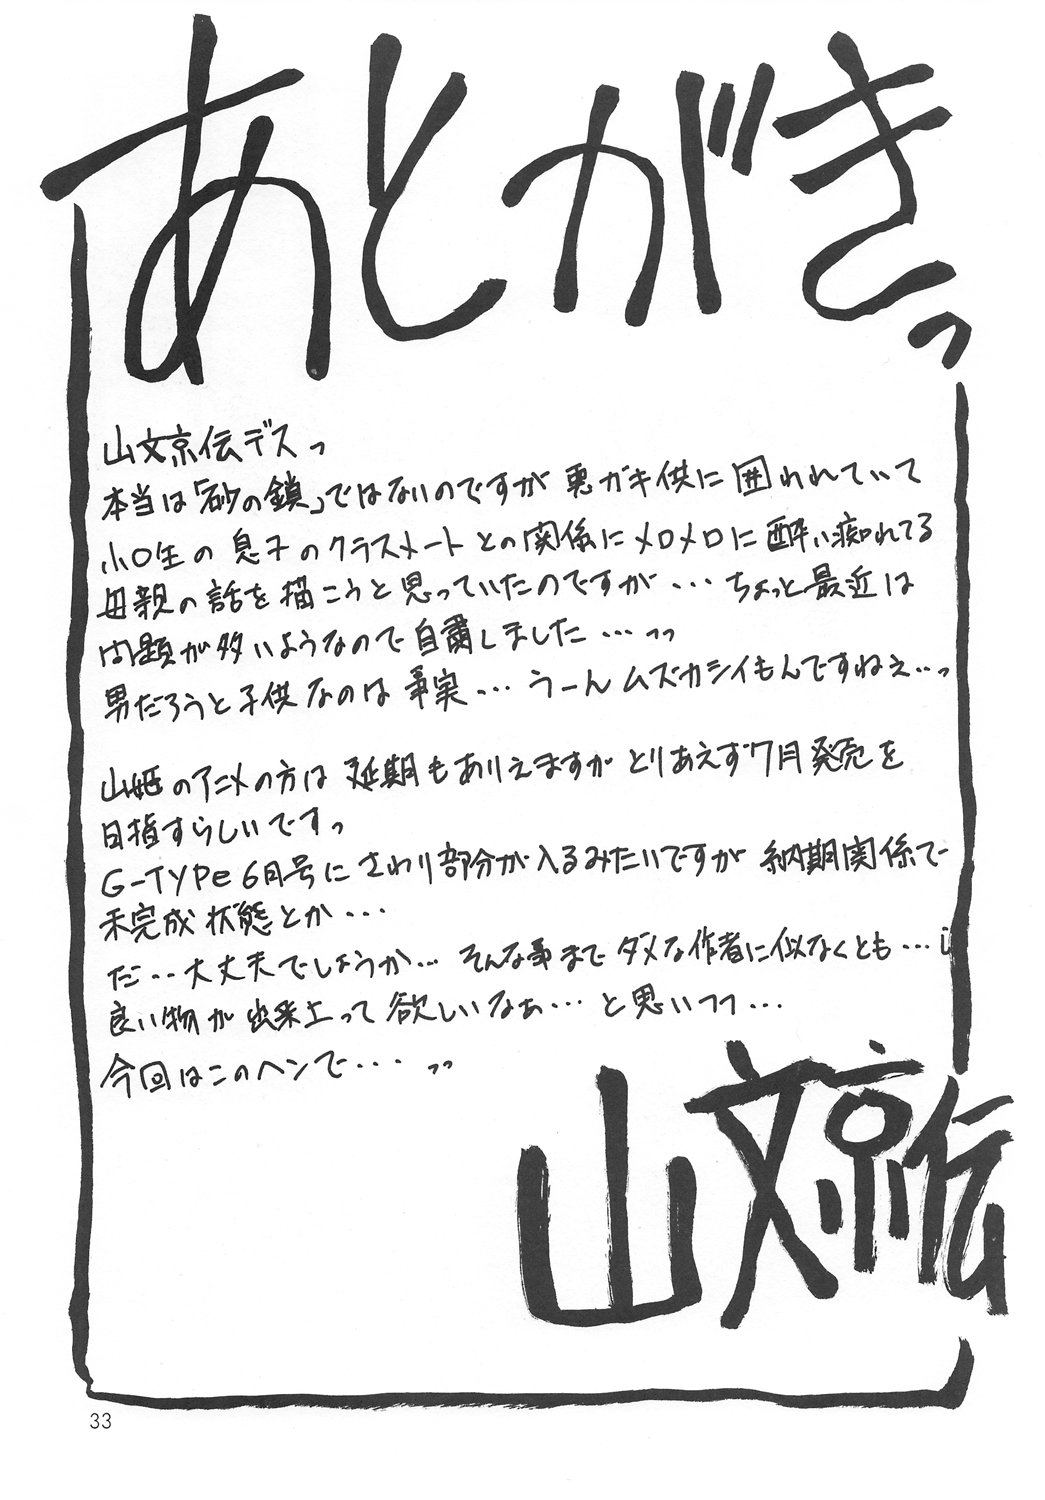 あとがきっ
山文京伝デスっ
本当は「砂の鎖」ではないのですが 悪ガキ供に囲われていて
小○生の息子のクラスメートとの関係にメロメロに酔い痴れてる
母親の話を描こうと思っていたのですが・・・ちょっと最近は
問題が多いようなので自粛しました・・・っっ
男だろうと子供なのは事実・・・うーんムズカシイもんですねぇ・・っ
山姫のアニメの方は延期もありえますがとりあえず7月発売を
目指すらしいですっ
G-TYPe 6月号にさわり部分が入るみたいですが納期関係で
未完成状態とか・・・
だ・・大丈夫でしょうか・・・そんな事までダメな作者に似なくとも・・・
良い物が出来上って欲しいなぁ・・・と思いつつ・・・
今回はこのヘンで・・・っっ
山文京伝
33